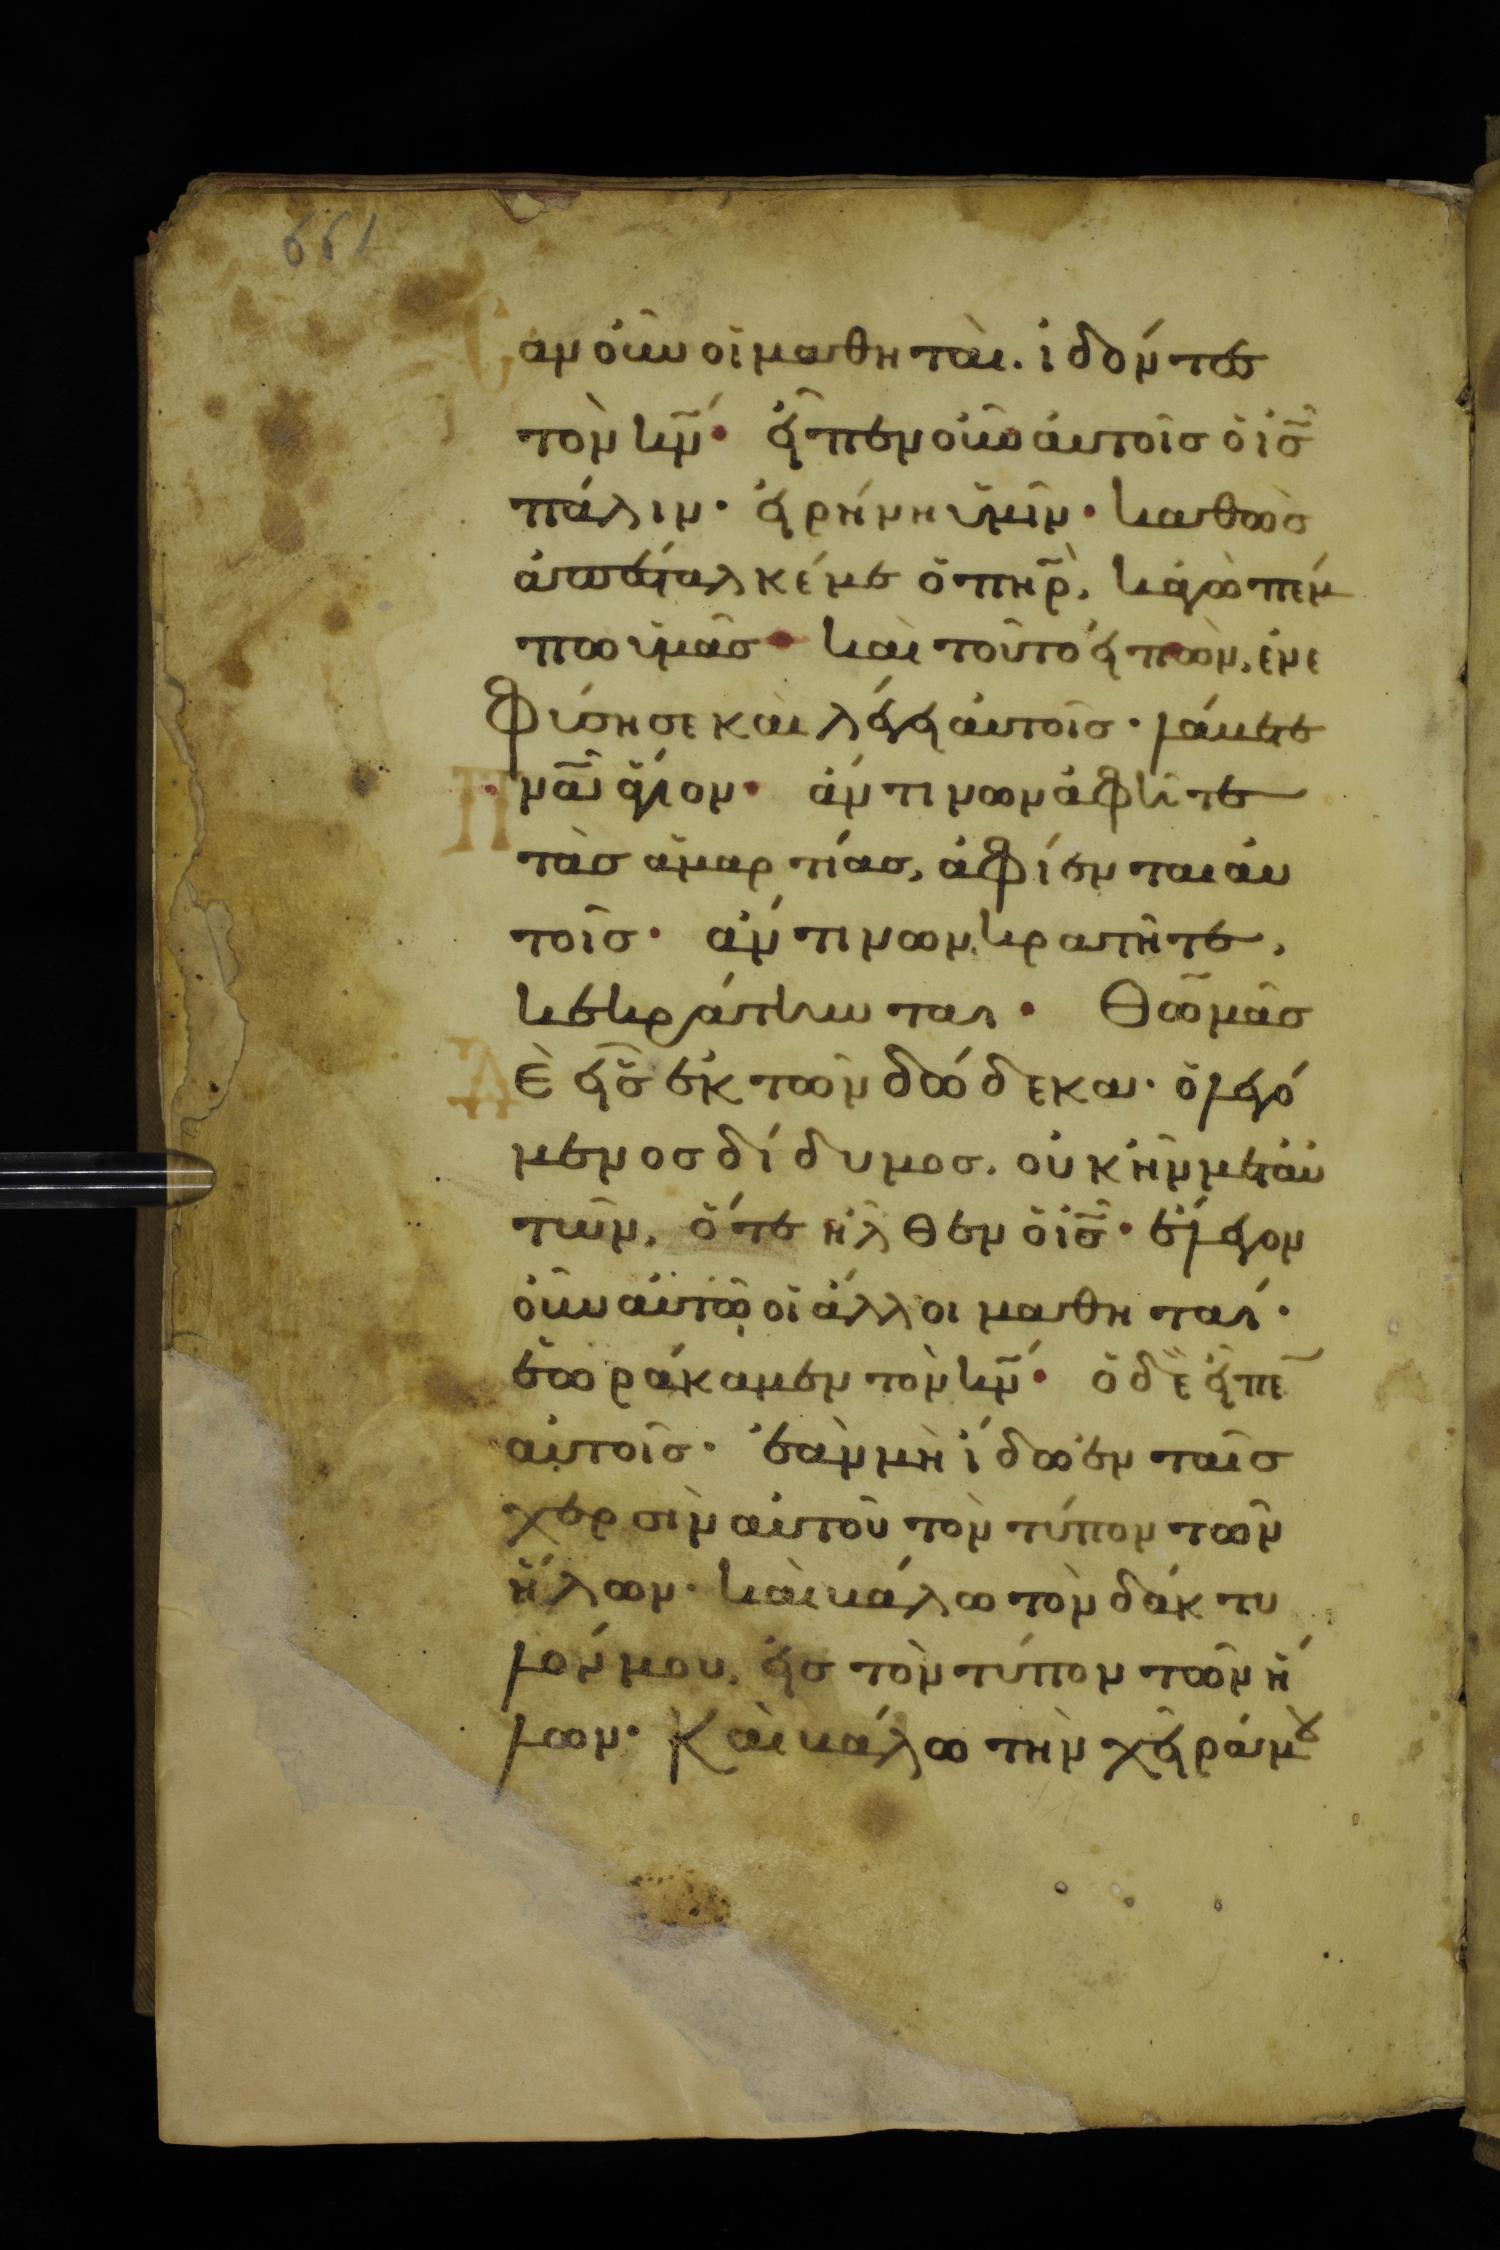 661
σαν οὖν οἱ μαθηταὶ. ἰδόντες
τὸν κν̅· εἶπεν οὖν αὐτοῖς ὁ ις̅
πάλιν· εἰρήνη ὑμῖν· καθὼς
ἀπέσταλκέ με ὁ πηρ̅, κἀγὼ πέμ
πω ὑμᾶς· καὶ τοῦτο εἰπὼν, ἐνε
φύσησε καὶ λέγει αὐτοῖς· λάβετε
πνα̅ ἅγιον· ἄν τινων ἀφῆτε
τὰς ἁμαρτίας, ἀφίενται αὐ
τοῖς· ἄν τινων κρατῆτε,
κεκράτηνται· Θωμᾶς
Δὲ εἷς ἐκ τῶν δώδεκα· ὁ λεγό
μενος δίδυμος. οὐκ ἦν μετ αὐ
τῶν, ὅτε ἦλθεν ὁ ις̅· ἔλεγον
οὖν αὐτῷ οἱ ἄλλοι μαθηταί·
ἑωράκαμεν τὸν κν̅· ὁ δὲ εἶπε̅
αὐτοῖς· ἐὰν μὴ ἴδω ἐν ταῖς
χερσὶν αὐτοῦ τὸν τύπον τῶν
ἥλων· καὶ βάλω τὸν δάκτυ
λόν μου, εἰς τὸν τύπον τῶν ἥ
λων· Καὶ βάλω τὴν χεῖρά μου